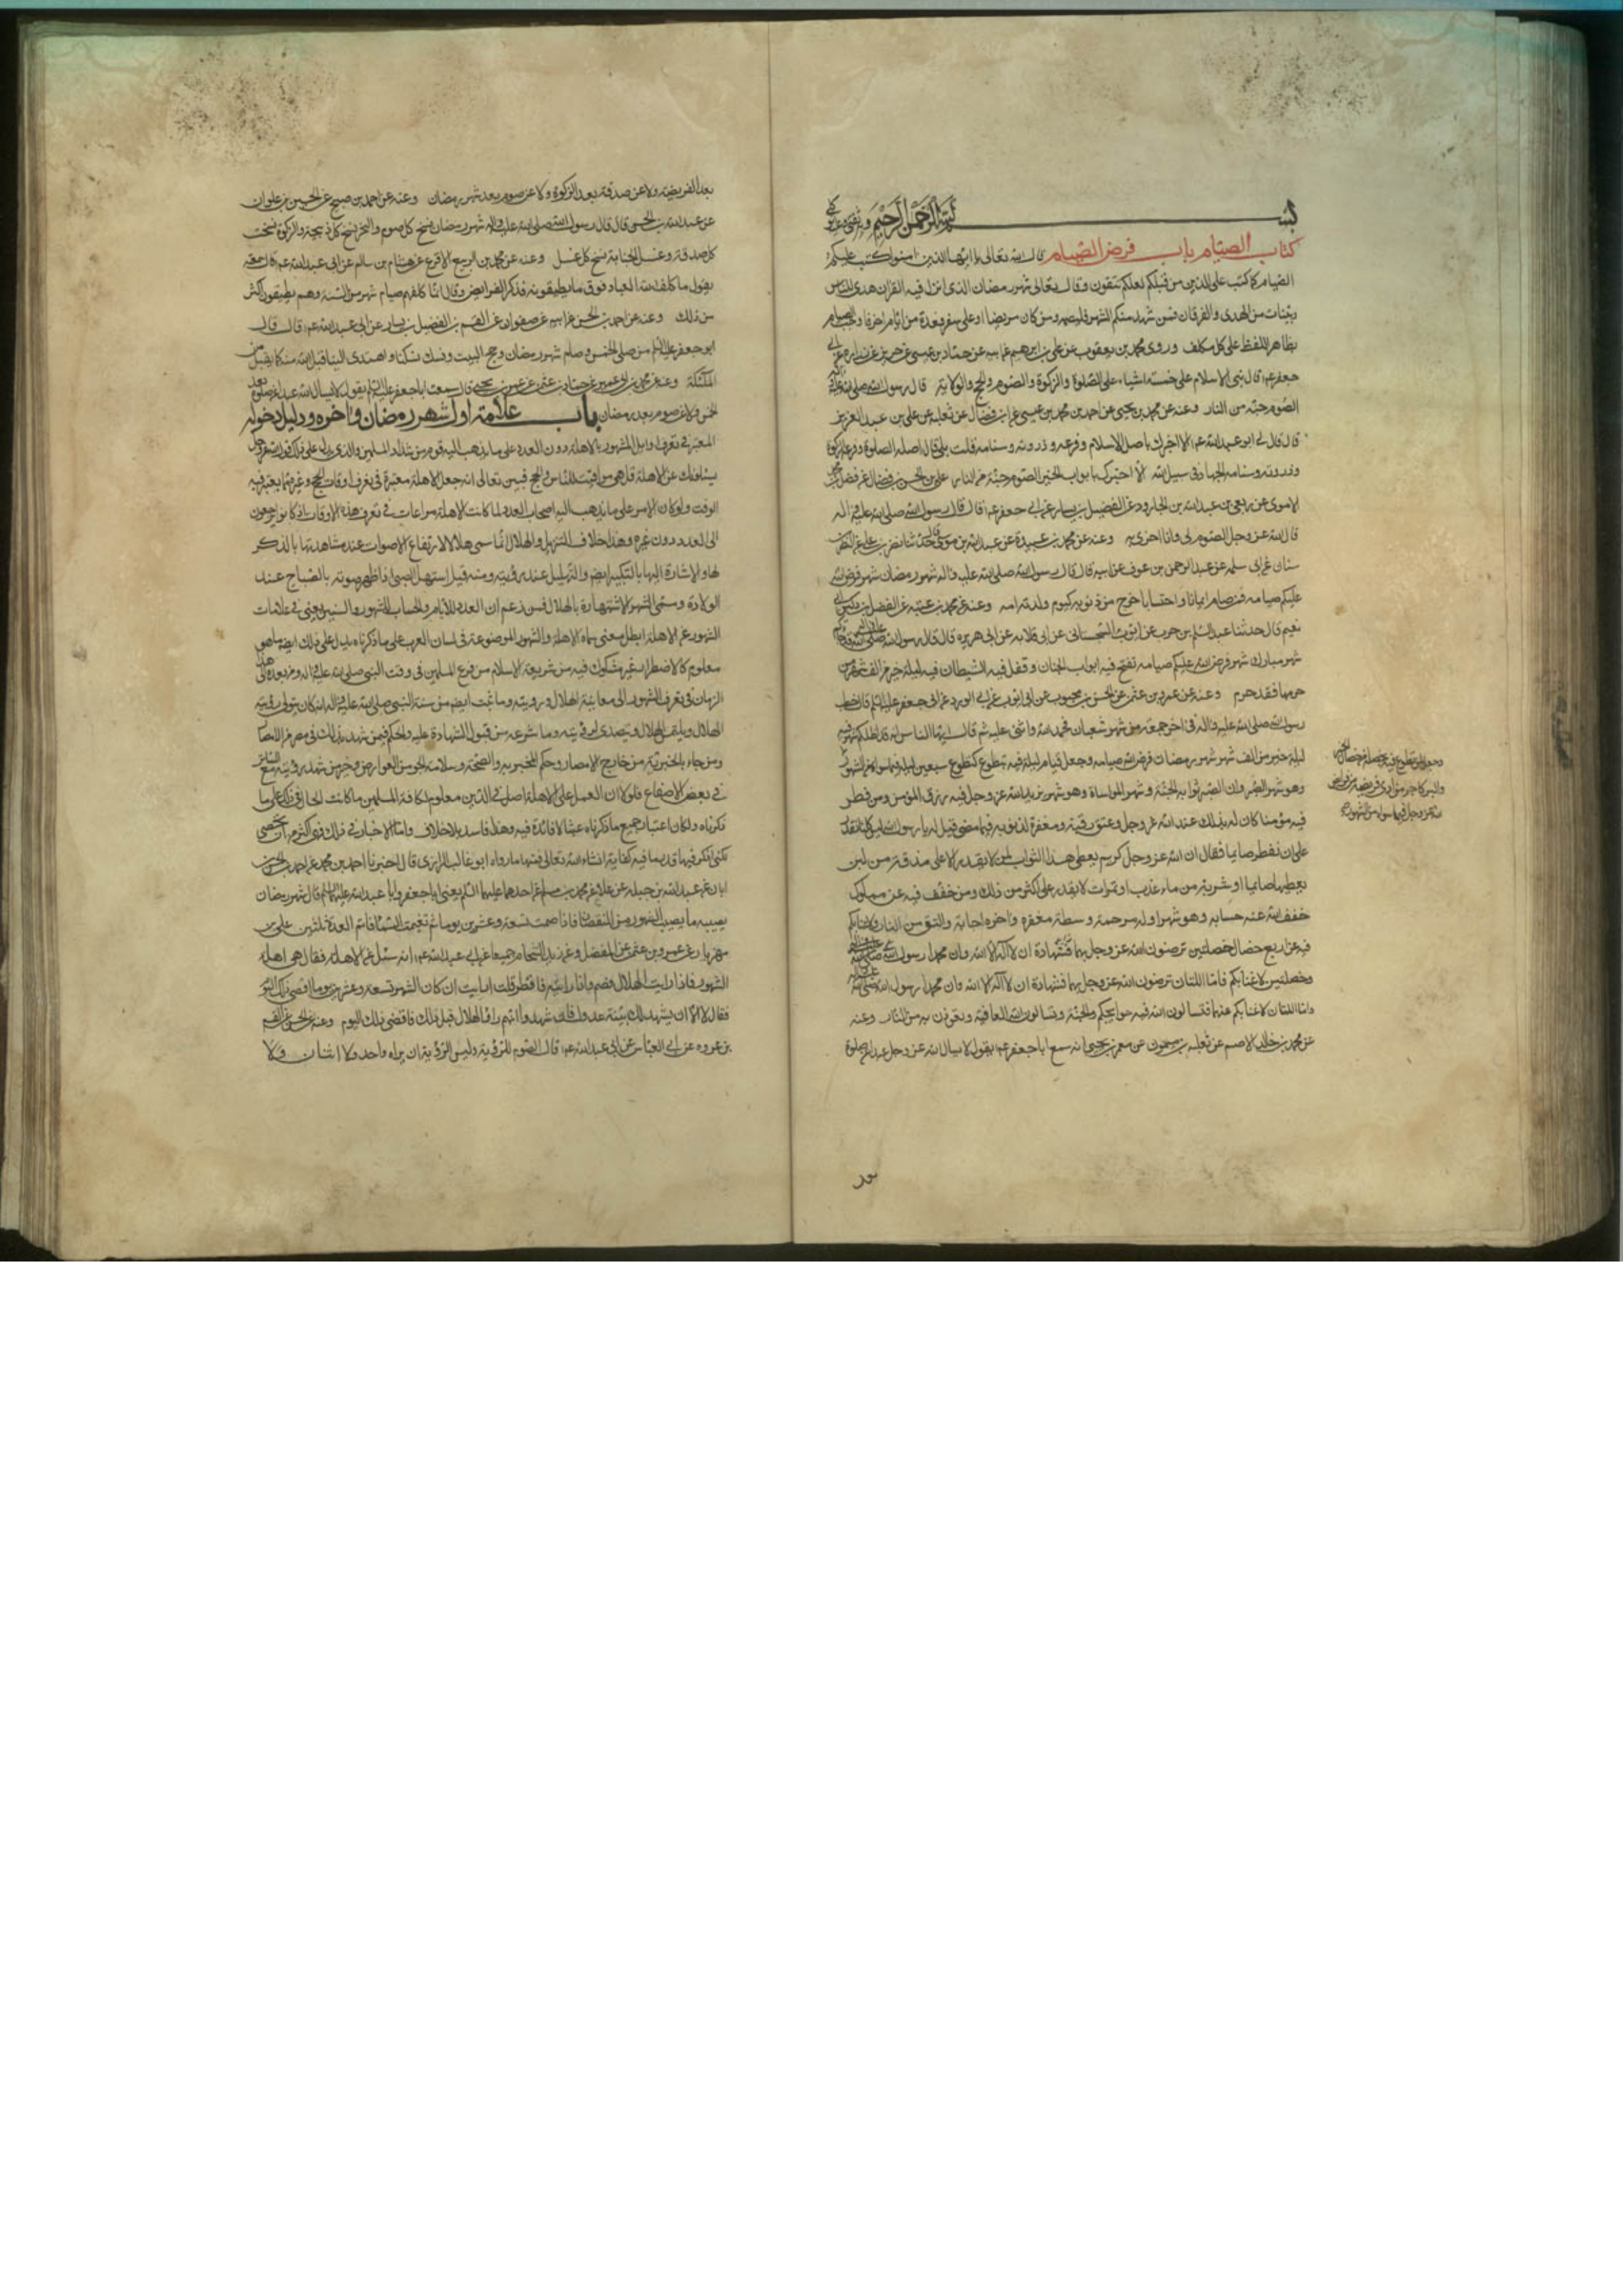 بسم الله الرحمن الرحيم
كتاب الصيام باب فرض الصيام قال الله تعالى يا ايها الذين امنوا كتب عليكم
الصيام كما كتب على الذين من قبلكم لعلكم تتقون وقال تعالى شهر رمضان الذى انزل فيه القران هدى للناس
وبينات من الهدى والفرقان فمن شهد منكم الشهر فليصمه ومن كان مريضا او على سفر فعدة من ايام اخر فاوجب الصيام
بظاهر اللفظ على كل مكلف وروى محمد بن يعقوب عن على بن ابرهيم عن ابيه عن حماد بن عيسى عن حريز عن زرارة عن ابى
جعفر ع قال بنى الاسلام على خمسة اشياء على الصلوة والزكوة والصوم والحج والولاية قال رسول الله صلى الله عليه واله
الصوم جنة من النار وعنه عن محمد بن يحيى عن احمد بن محمد بن عيسى عن ابن فضال عن ثعلبة عن على بن عبد العزيز
قال قال لى ابو عبد الله ع الا اخبرك باصل الاسلام وفرعه وذروته وسنامه قلت بلى قال اصله الصلوة وفرعه الزكوة
وذروته وسنامه الجهاد فى سبيل الله الا اخبرك بابواب الخير الصوم جنة من النار على بن الحسن بن فضال عن فضل بن محمد
الاموى عن ربعى بن عبد الله بن الجارود عن الفضيل بن يسار عن ابى جعفر ع قال قال رسول الله صلى الله عليه واله
قال الله عز وجل الصوم لى وانا اجزى به وعنه عن محمد بن عبيدة عن عبيد الله بن موسى قال حدثنا نصر بن على عن النضر بن
سنان عن ابى سلمة عن عبد الرحمن بن عوف عن ابيه قال قال رسول الله صلى الله عليه واله شهر رمضان شهر فرض الله
عليكم صيامه فمن صامه ايمانا واحتسابا خرج من ذنوبه كيوم ولدته امه وعنه عن محمد بن عتبة عن الفضل بن دكين ابى
نعيم قال حدثنا عبد السلم بن حرب عن ايوب السجستانى عن ابى قلابه عن ابى هريره قال قال رسول الله صلى الله عليه واله
شهر مبارك شهر فرض الله عليكم صيامه تفتح فيه ابواب الجنان وتغل فيه الشيطان فيه ليلة خير من الف شهر من
حرمها فقد حرم وعنه عن عمرو بن عثمن عن الحسن بن محبوب عن ابى ايوب عن ابى الورد عن ابى جعفر عليه السلم قال خطب
رسول الله صلى الله عليه واله فى اخر جمعة من شهر شعبان فحمد الله واثنى عليه ثم قال ايها الناس انه قد اظلكم شهر فيه
ليلة خير من الف شهر شهر رمضان فرض الله صيامه وجعل قيام ليلة فيه بتطوع كتطوع سبعين ليلة فيما سواه من الشهور
وجعل لمن تطوع فيه بخصلة من خصال الخير
والبر كاجر من ادى فريضة من فرائض
الله عز وجل فيما سواه من الشهور
وهو شهر الصبر وان الصبر ثوابه الجنة وشهر المواساة وهو شهر يزيد الله عز وجل فيه رزق المؤمن ومن فطر
فيه مؤمنا كان له بذلك عند الله عز وجل عتق رقبة ومغفرة لذنوبه فيما مضى فقيل له يا رسول الله ليس كلنا نقدر
على ان نفطر صائما فقال ان الله عز وجل كريم يعطى هذا الثواب لمن لا يقدر الا على مذقة من لبن
يعطيها صائما او شربة من ماء عذب او تمرات لا يقدر على اكثر من ذلك ومن خفف فيه عن مملوكه
خفف الله عنه حسابه وهو شهر اوله رحمة وسطه مغفره واخره اجابة والعتق من النار ولا غنا بكم
فيه عن اربع خصال خصلتين ترضون الله عز وجل بهما فشهادة ان لا اله الا الله وان محمدا رسول الله صلى الله عليه واله
وخصلتين لا غنا بكم فاما اللتان ترضون الله عز وجل بهما فشهادة ان لا اله الا الله وان محمدا رسول الله صلى الله عليه واله
واما اللتان لا غنا بكم عنهما فتسالون الله فيه حوائجكم والجنة وتسالون الله العافية وتعوذون به من النار وعنه
عن محمد بن خالد الاصم عن ثعلبه بن ميمون عن معمر بن يحيى انه سمع ابا جعفر ع يقول لا يسال الله عز وجل عبدا عن صلوة
بعد الفريضة ولا عن صدقة بعد الزكوة ولا عن صوم بعد شهر رمضان وعنه عن احمد بن صبيح عن الحسين بن علوان
عن عبد الله بن الحسن قال قال رسول الله صلى الله عليه واله شهر رمضان نسخ كل صوم والنحر نسخ كل ذبيحة والزكوة نسخت
كل صدقة وغسل الجنابة نسخ كل غسل وعنه عن محمد بن الربيع الاقرع عن هشام بن سالم عن ابى عبد الله ع قال سمعته
يقول ما كلف الله العباد فوق ما يطيقونه فذكر الفرائض وقال انما كلفهم صيام شهر من السنة وهم يطيقون اكثر
من ذلك وعنه عن احمد بن الحسن عن ابيه عن صفوان عن القسم بن الفضيل بن يسار عن ابى عبد الله ع قال قال
ابو جعفر عليه السلم من صلى الخمس وصام شهر رمضان وحج البيت ونسك نسكنا واهتدى الينا قبل الله منه كما يقبل من
الملئكة وعنه عن محمد بن ابى عمير عن حماد بن عثمن عن عمر بن يحيى قال سمعت ابا جعفر عليه السلم يقول لا يسال الله عبدا عن صلوة بعد
الخمس ولا عن صوم بعد رمضان باب علامة اول شهر رمضان واخره ودليل دخوله
المعتبر فى تعرف اوايل الشهور بالاهلة دون العدد على ما يذهب اليه قوم من شذاذ المسلمين والذى يدل على ذلك قول الله عز وجل
يسئلونك عن الاهلة قل هى مواقيت للناس والحج فبين تعالى انه جعل الاهلة معتبرة فى تعرف اوقات الحج وغيره مما يعتبر فيه
الوقت ولو كان الامر على ما يذهب اليه اصحاب العدد لما كانت الاهلة مراعات فى تعرف هذه الاوقات اذ كانوا يرجعون
الى العدد دون غيره وهذا خلاف التنزيل والهلال انما سمى هلالا لارتفاع الاصوات عند مشاهدتها بالذكر
لها والاشارة اليها بالتكبير ايضا والتهليل عند رؤيته ومنه قيل استهل الصبى اذا ظهر صوته بالصياح عند
الولادة وسمى الشهر لاشتهاره بالهلال فمن زعم ان العدد للايام والحساب للشهور والسنين يغنى فى علامات
الشهور عن الاهلة ابطل معنى سماة الاهلة والشهور الموضوعة فى لسان العرب على ما ذكرناه يدل على ذلك ايضا ما هو
معلوم كالاضطرار غير مشكوك فيه من شريعة الاسلام من فزع المسلمين فى وقت النبى صلى الله عليه واله ومن بعده الى هذا
الزمان فى تعرف الشهور الى معاينة الهلال ورؤيته وما ثبت ايضا من سنة النبى صلى الله عليه واله انه كان يتولى رؤية
الهلال ويلتمس الهلال ويتصدى لرؤيته وما شرعه من قبول الشهادة عليه والحكم فيمن شهد بذلك فى مصر من الامصار
ومن جاء بالخبر به من خارج الامصار وحكم المخبر به والصحة وسلامة الجو من العوارض وخبر من شهد رؤيته مع السواتر
فى بعض الاصقاع فلولا ان العمل على الاهلة اصل فى الدين معلوم لكافة المسلمين ما كانت الحال فى ذلك على ما
ذكرناه ولكان اعتبار جميع ما ذكرناه عبثا لا فائدة فيه وهذا فاسد بلا خلاف واما الاخبار فى ذلك فهى اكثر من ان تحصى
لكنى اذكر فيها قدر ما فيه كفاية انشاء الله تعالى فمنها ما رواه ابو غالب الزرارى قال اخبرنا احمد بن محمد عن احمد بن الحسن بن
ابان عن عبد الله بن جبلة عن علاء عن محمد بن مسلم عن احدهما عليهما السلم يعنى ابا جعفر وابا عبد الله عليهما السلم قال شهر رمضان
يصيبه ما يصيب الشهور من النقصان فاذا صمت تسعة وعشرين يوما ثم تغيمت السماء فاتم العدة ثلثين على بن
مهزيار عن عمرو بن عثمن عن المفضل وعن زيد الشحام جميعا عن ابى عبد الله ع انه سئل عن الاهلة فقال هى اهلة
الشهور فاذا رايت الهلال فصم واذا رايته فافطر قلت ارايت ان كان الشهر تسعة وعشرين يوما اقضى ذلك اليوم
فقال لا الا ان يشهد لك بينة عدول فان شهدوا انهم راوا الهلال قبل ذلك فاقض ذلك اليوم وعنه عن الحسن عن القسم
بن عروه عن ابى العباس عن ابى عبد الله ع قال الصوم للرؤية وليس الرؤية ان يراه واحد ولا اثنان ولا